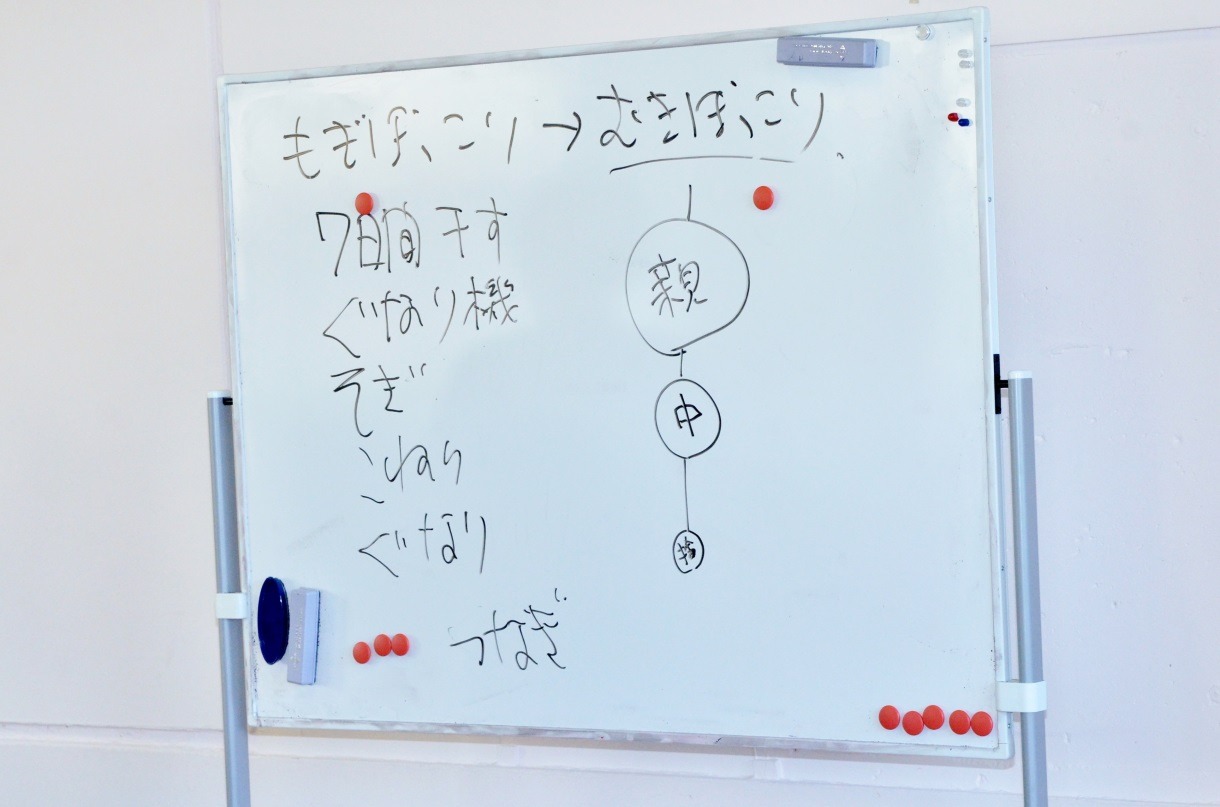 もぎぼっこり→むきぼっこり、
7日間干す
ぐなり機
そぎ
こねり
ぐなり
つなぎ
親
中